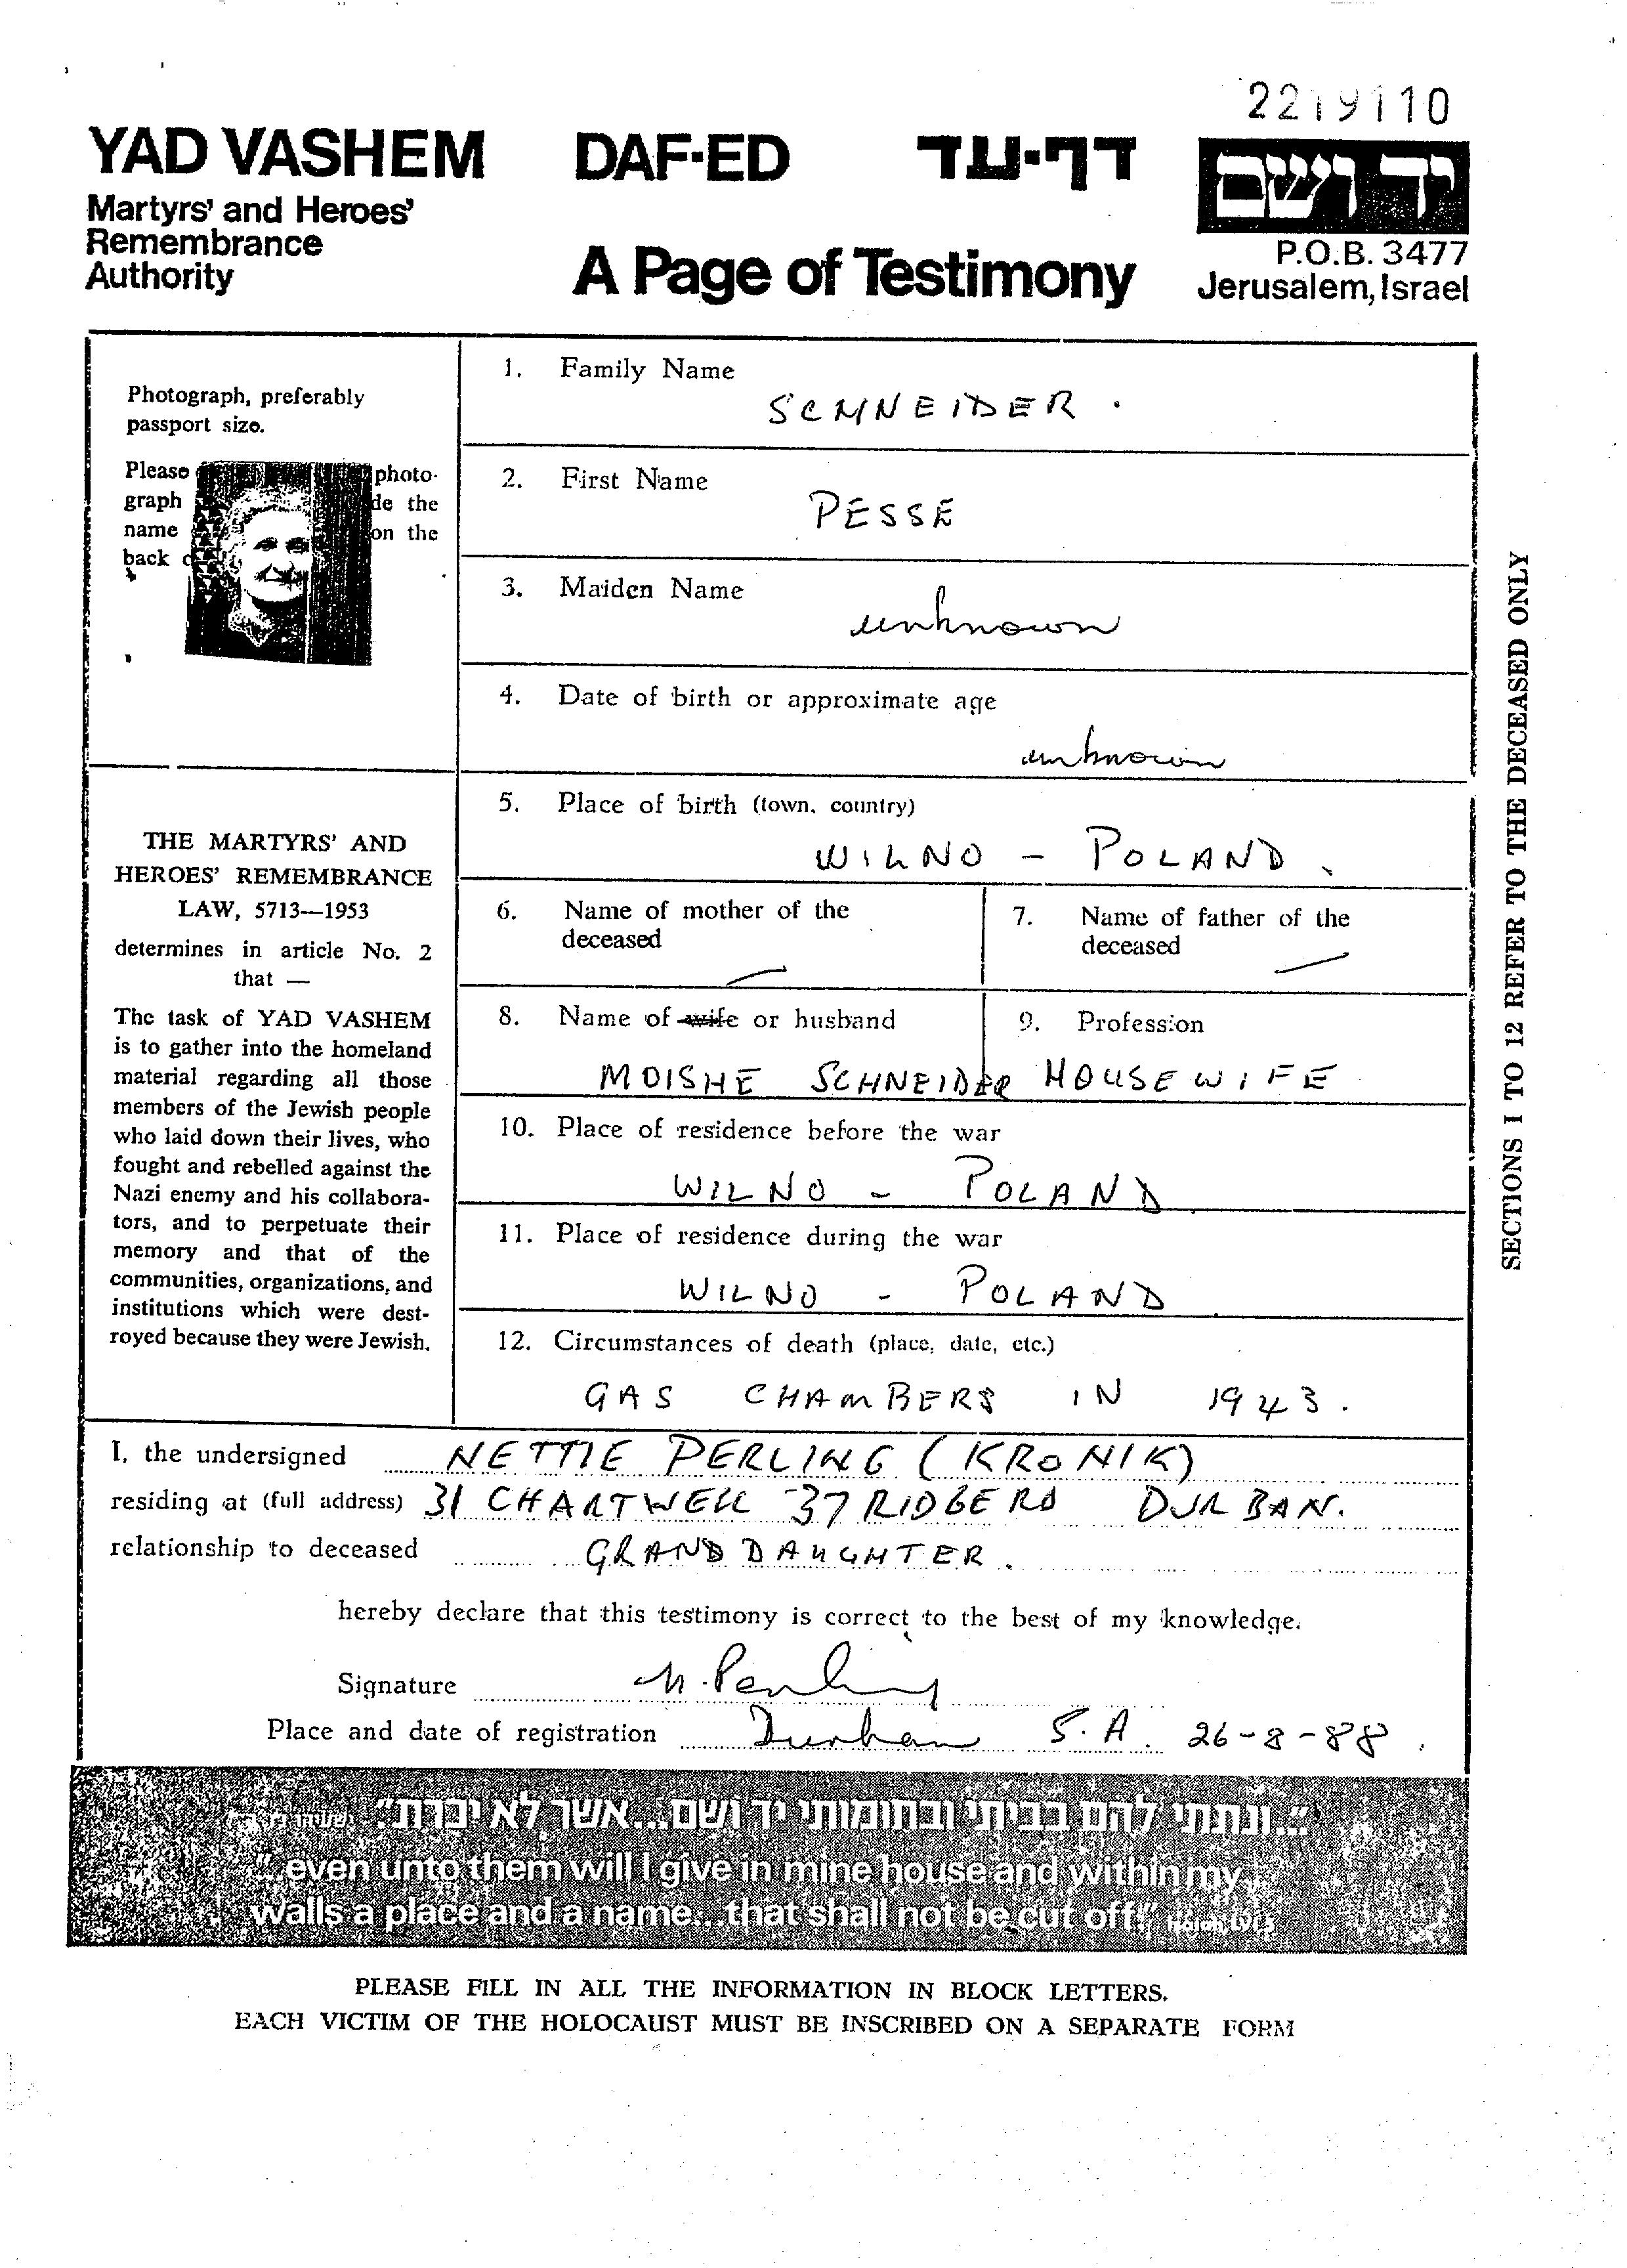 2219110
YAD VASHEM
Martyrs' and Heroes'
Remembrance
Authority
DAF-ED
דף-עד
A Page of Testimony
יד ושם
P.O.B. 3477
Jerusalem, Israel
Photograph, preferably
passport size.
Please photo-
graph de the
name on the
back
THE MARTYRS' AND
HEROES' REMEMBRANCE
LAW, 5713—1953
determines in article No. 2
that —
The task of YAD VASHEM
is to gather into the homeland
material regarding all those
members of the Jewish people
who laid down their lives, who
fought and rebelled against the
Nazi enemy and his collabora-
tors, and to perpetuate their
memory and that of the
communities, organizations, and
institutions which were dest-
royed because they were Jewish.
1. Family Name
SCHNEIDER.
2. First Name
PESSE
3. Maiden Name
unknown
4. Date of birth or approximate age
unknown
5. Place of birth (town, country)
WILNO - POLAND.
6. Name of mother of the
deceased
7. Name of father of the
deceased
8. Name of wife or husband
MOISHE SCHNEIDER
9. Profession
HOUSEWIFE
10. Place of residence before the war
WILNO - POLAND
11. Place of residence during the war
WILNO - POLAND
12. Circumstances of death (place, date, etc.)
GAS CHAMBERS IN 1943.
SECTIONS 1 TO 12 REFER TO THE DECEASED ONLY
I, the undersigned NETTIE PERLING (KRONIK)
residing at (full address) 31 CHARTWELL 37 RIDGE RD DURBAN.
relationship to deceased GRANDDAUGHTER.
hereby declare that this testimony is correct to the best of my knowledge.
Signature N. Perling
Place and date of registration Durban S.A. 26-8-88.
"...ונתתי להם בביתי ובחומותי יד ושם...אשר לא יכרת."
"...even unto them will I give in mine house and within my
walls a place and a name...that shall not be cut off." Isaiah LVI 5
PLEASE FILL IN ALL THE INFORMATION IN BLOCK LETTERS.
EACH VICTIM OF THE HOLOCAUST MUST BE INSCRIBED ON A SEPARATE FORM